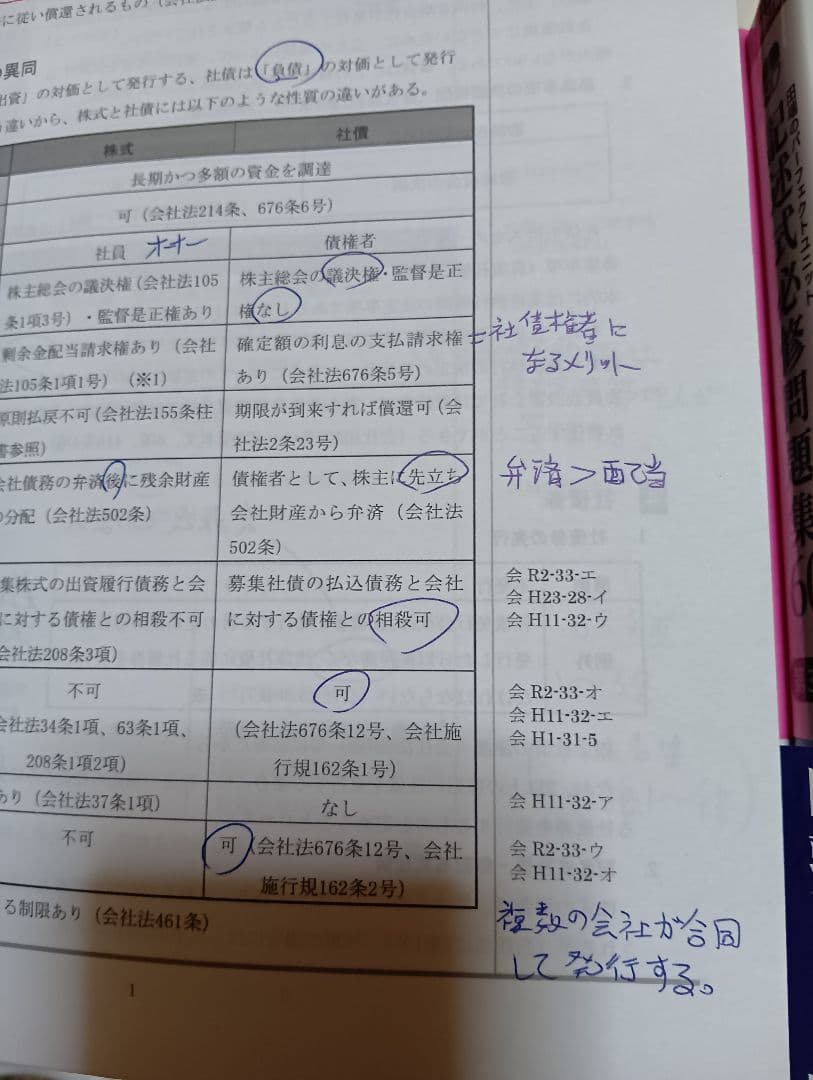 に従い償還されるもの（会社法
の異同
出資」の対価として発行する、社債は「負債」の対価として発行
違いから、株式と社債には以下のような性質の違いがある。
株式
社債
長期かつ多額の資金を調達
可（会社法214条、676条6号）
社員 オーナー
債権者
株主総会の議決権（会社法105
条1項3号）・監督是正権あり
株主総会の議決権・監督是正
権なし
剰余金配当請求権あり（会社
法105条1項1号）（※1）
確定額の利息の支払請求権
あり（会社法676条5号）
=社債権者に
なるメリット
原則払戻不可（会社法155条柱
書参照）
期限が到来すれば償還可（会
社法2条23号）
会社債務の弁済後に残余財産
の分配（会社法502条）
債権者として、株主に先立ち
会社財産から弁済（会社法
502条）
弁済＞配当
集株式の出資履行債務と会
に対する債権との相殺不可
会社法208条3項）
募集社債の払込債務と会社
に対する債権との相殺可
会 R2-33-エ
会 H23-28-イ
会 H11-32-ウ
不可
会社法34条1項、63条1項、
208条1項2項）
可
（会社法676条12号、会社施
行規162条1号）
会 R2-33-オ
会 H11-32-エ
会 H1-31-5
あり（会社法37条1項）
なし
会 H11-32-ア
不可
可（会社法676条12号、会社
施行規162条2号）
会 R2-33-ウ
会 H11-32-オ
る制限あり（会社法461条）
複数の会社が合同
して発行する。
1
記述式必修問題集
のパーフェクトユニット